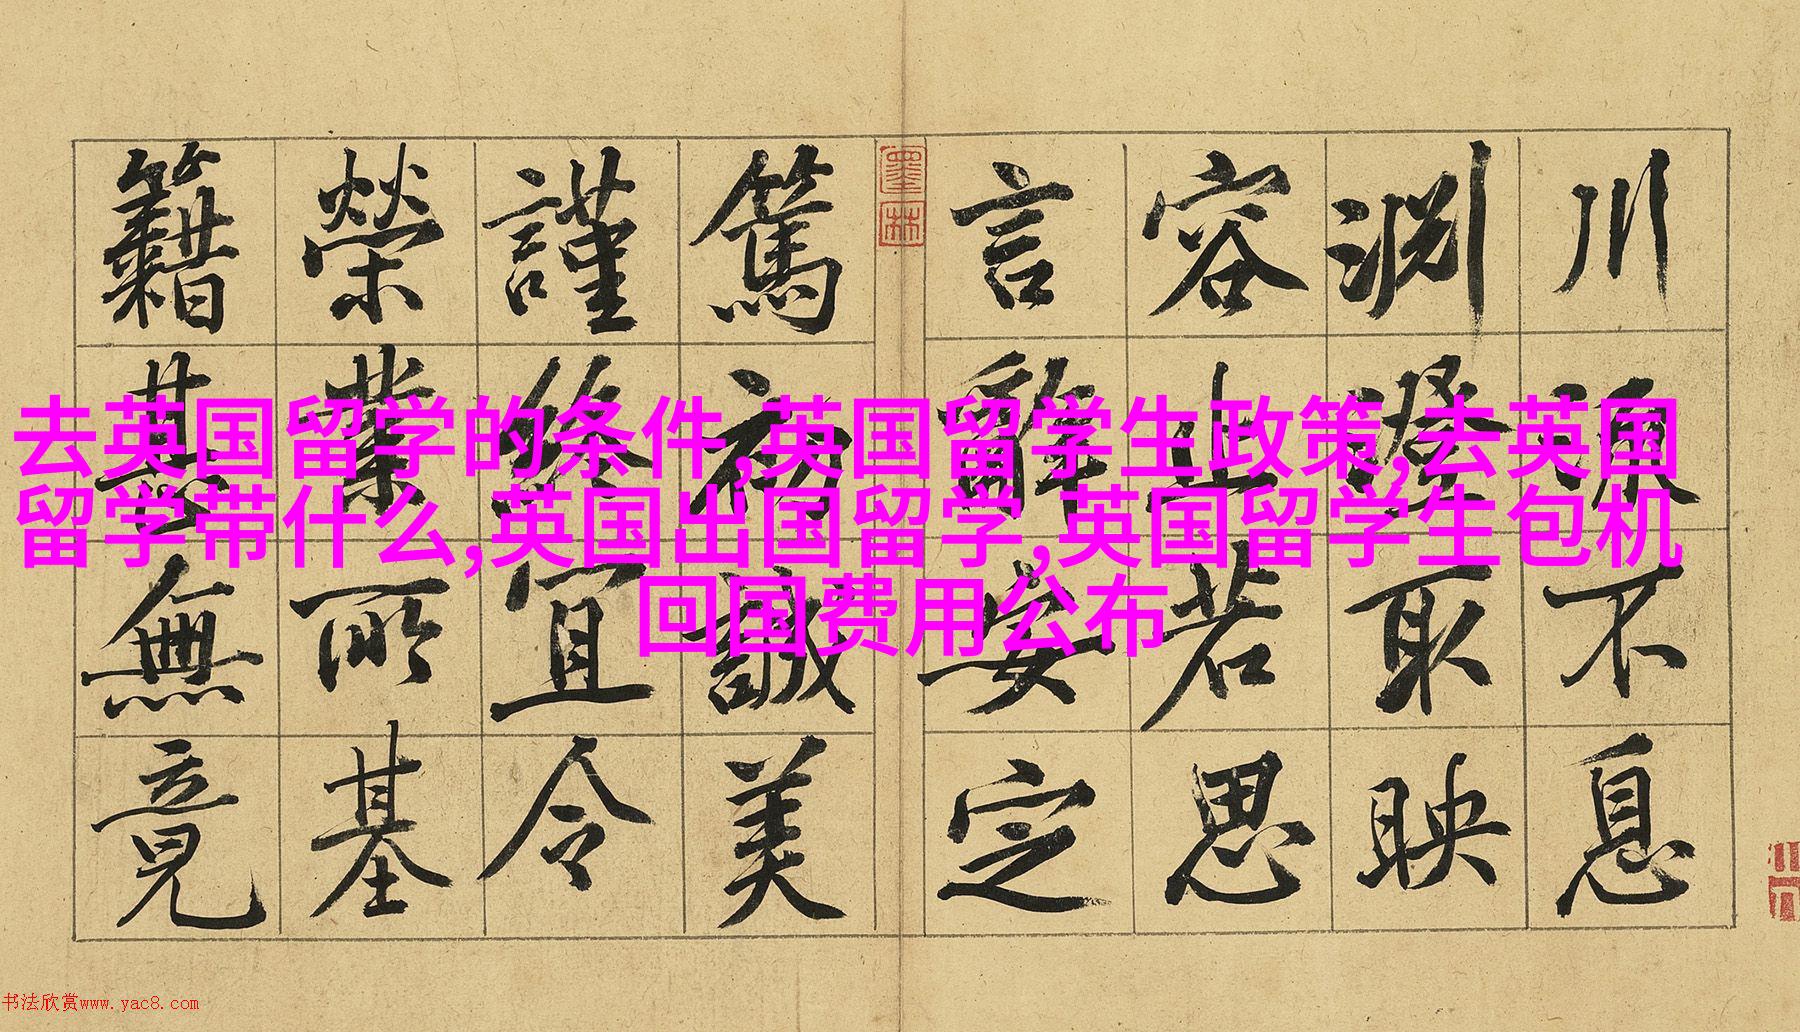 川流不息
淵澄取映
容止若思
言辭安定
墨林
篤初誠美
謹終宜令
榮業所基
籍甚無竟
去英国留学的条件,英国留学生政策,去英国
留学带什么,英国出国留学,英国留学生包机
回国费用公布
书法欣赏www.yac8.com